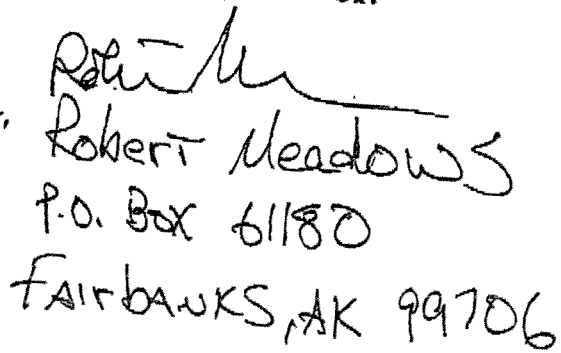 Robert Meadows
P.O. Box 61180
FAIrbANKS, AK 99706